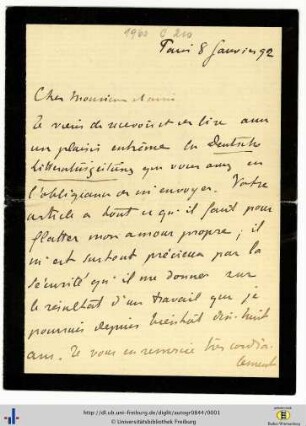 1960 C 210
Paris 8 Janvier 92
Cher Monsieur et ami
Je viens de recevoir et de lire avec
un plaisir extrême la Deutsche
litteraturzeitung que vous avez eu
l'obligeance de m'envoyer. Votre
article a tout ce qu'il faut pour
flatter mon amour propre ; il
m'est surtout précieux par la
sécurité qu'il me donne sur
le résultat d'un travail que je
poursuis depuis bientôt dix-huit
ans. Je vous en remercie très cordia-
lement
http://dl.ub.uni-freiburg.de/diglit/autogr0844/0001
© Universitätsbibliothek Freiburg
Baden-Württemberg